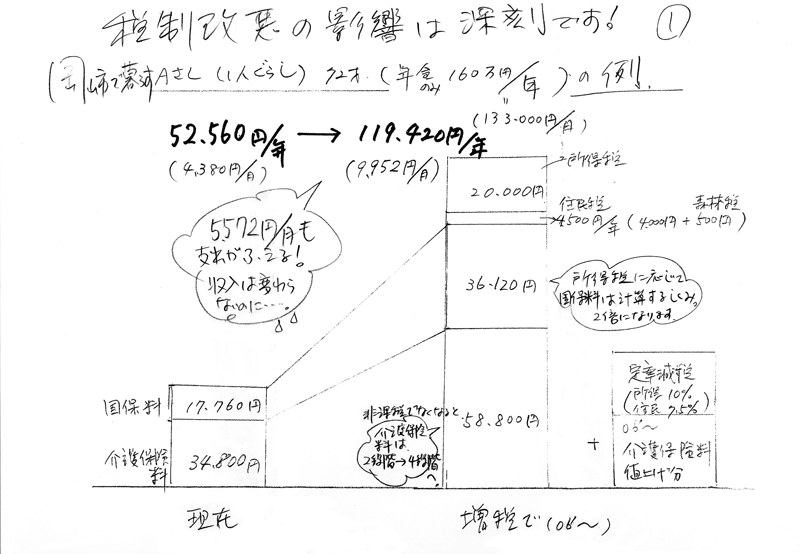 税制改悪の影響は深刻です! ①
(岡山市で暮すAさん (1人ぐらし) 72才. (年金のみ 160万円/年) の例.
(133.000円/月)
52.560円/年 → 119.420円/年
(4,380円/月) (9,952円/月)
5,572円/月も
支出がふえる!
収入は変わら
ないのに…。
所得税
20.000円
住民税 森林税
4500円/年 (4000円+500円)
36.120円
所得税に応じて
国保料は計算するしくみ。
2倍になります。
国保料 17.760円
介護保険料 34.800円
非課税でなくなると
介護保険
料は
2段階→4段階へ。
58.800円
+
定率減税
(所得 10%
住民 7.5%)
06'〜
介護保険料
値上げ分
現在
増税で(06'〜)